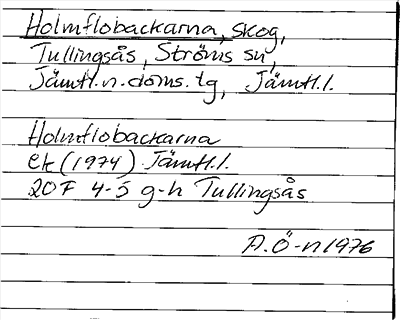 Holmflobackarna, skog,
Tullingsås, Ströms sn,
Jämtl.n.doms.tg, Jämtl.l.
Holmflobackarna
ek (1974) Jämtl.l.
20F 4-5 g-h Tullingsås
A.Ö-n 1976